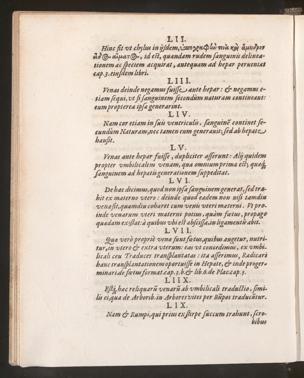 LII.
Hinc fit vt chylus in ijsdem,
, id est, quandam rudem sanguinis delinea-
tionem ac speciem acquirat, antequam ad hepar perueniat
cap. 3. eiusdem libri.
LIII.
Venas deinde negamus fuisse, ante hepar: & negamus e-
tiam sequi, vt si sanguinem secundùm naturam contineant:
eum propterea ipsa generarint.
LIV.
Nam cor etiam in suis ventriculis, sanguinē continet se-
cundùm Naturam, nec tamen eum generauit, sed ab hepate
hausit.
LV.
Venas ante hepar fuisse, dupliciter asserunt: Alij quidem
propter vmbilicalem venam, quæ omnium prima est; quòd
sanguinem ad hepatis generationem suppeditat.
LVI.
De hac dicimus, quod non ipsa sanguinem generat, sed tra-
hit ex materno vtero: deinde quod eadem non nisi tamdiu
vena sit, quamdiu cohæret cum venis vteri materni. Pro-
inde venarum vteri materni potius, quàm fœtus, propago
quædam existat: à quibus vbi est abscissa, in ligamentū abit.
LVII.
Quæ verò propriè vena sunt fœtus, quibus augetur, nutri-
tur, in vtero & extra vteram: eæ vt concedimus, ex vmbi-
licali ceu Traduces transplantatæ: ita asserimus, Radicari
hanc transplantationem oportuisse in Hepate, & inde proger-
minari de fœtus format. cap. 3. b. & lib. 6. de Plac. cap. 3.
LIIX.
Estq́ hæc reliquarū venarū ab vmbilicali traductio, simi-
lis ei, qua de Arborib. in Arbores vites per traducuntur.
LIX.
Nam & Rumpi, qui prius ex stirpe succum trahunt, scro-
bibus